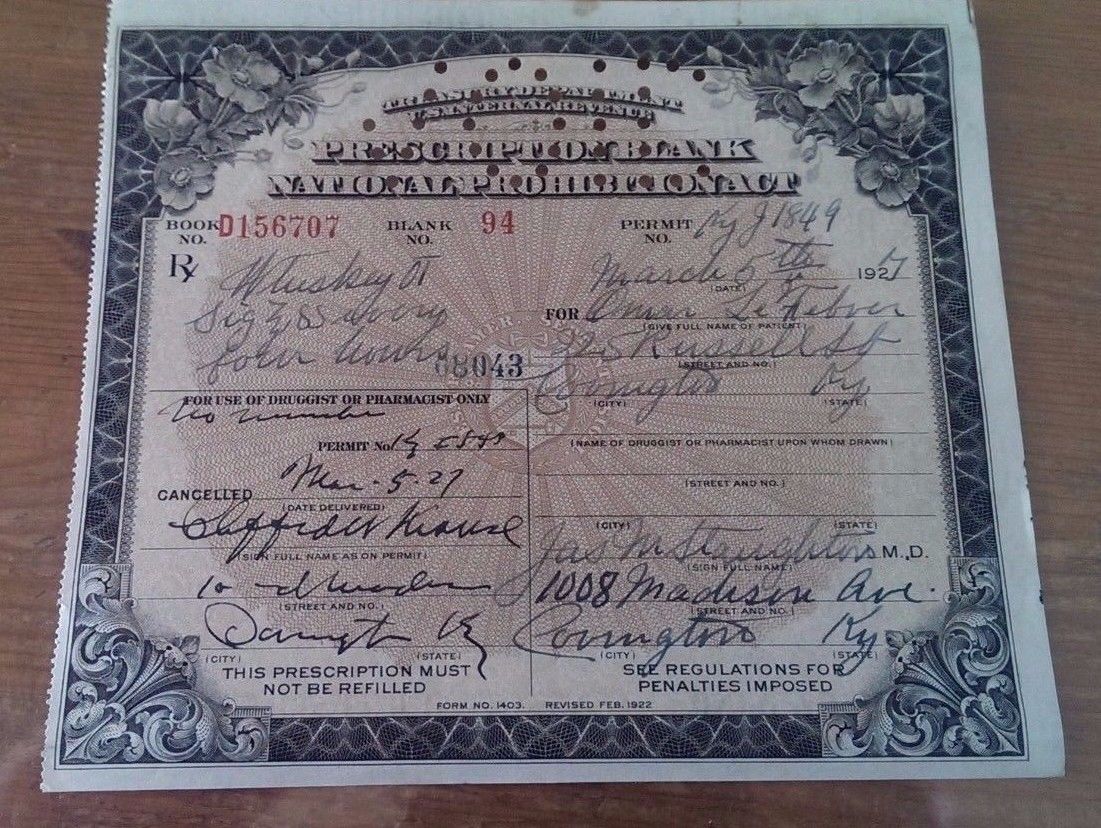 TREASURY DEPARTMENT
U.S. INTERNAL REVENUE
PRESCRIPTION BLANK
NATIONAL PROHIBITION ACT
BOOK NO. D156707 BLANK NO. 94 PERMIT NO. Ky J 1849
Rx Whiskey March 5th 1927
(DATE)
Sig every FOR Omar
(GIVE FULL NAME OF PATIENT)
four hours Russell St
(STREET AND NO.)
68043 Covington Ky
(CITY) (STATE)
FOR USE OF DRUGGIST OR PHARMACIST ONLY
No number
PERMIT No. Ky
(NAME OF DRUGGIST OR PHARMACIST UPON WHOM DRAWN)
CANCELLED Mar-5-27
(DATE DELIVERED)
(STREET AND NO.)
Clifford Krause
(SIGN FULL NAME AS ON PERMIT)
(CITY) (STATE)
Jas M. D.
(SIGN FULL NAME)
10
(STREET AND NO.)
1008 Madison Ave.
(STREET AND NO.)
Covington Ky
(CITY) (STATE)
Covington Ky
(CITY) (STATE)
THIS PRESCRIPTION MUST
NOT BE REFILLED
SEE REGULATIONS FOR
PENALTIES IMPOSED
FORM NO. 1403. REVISED FEB. 1922